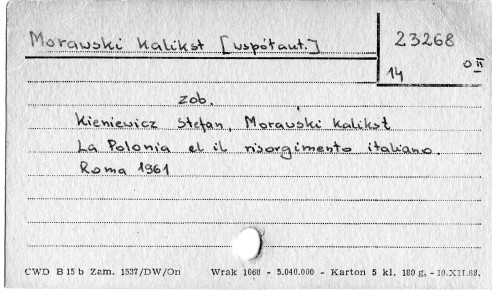 Morawski Kalikst [współaut.]
23268
14 O II
zob.
Kieniewicz Stefan, Morawski Kalikst
La Polonia el il risorgimento italiano.
Roma 1961
CWD B 15 b Zam. 1537/DW/On Wrak 1068 - 5.040.000 - Karton 5 kl. 180 g. - 10.XII.68.